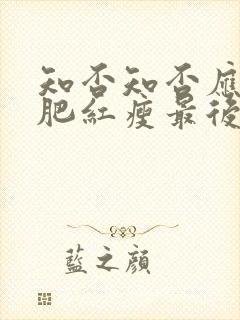 知否知否應
肥紅瘦最後
藍之顏